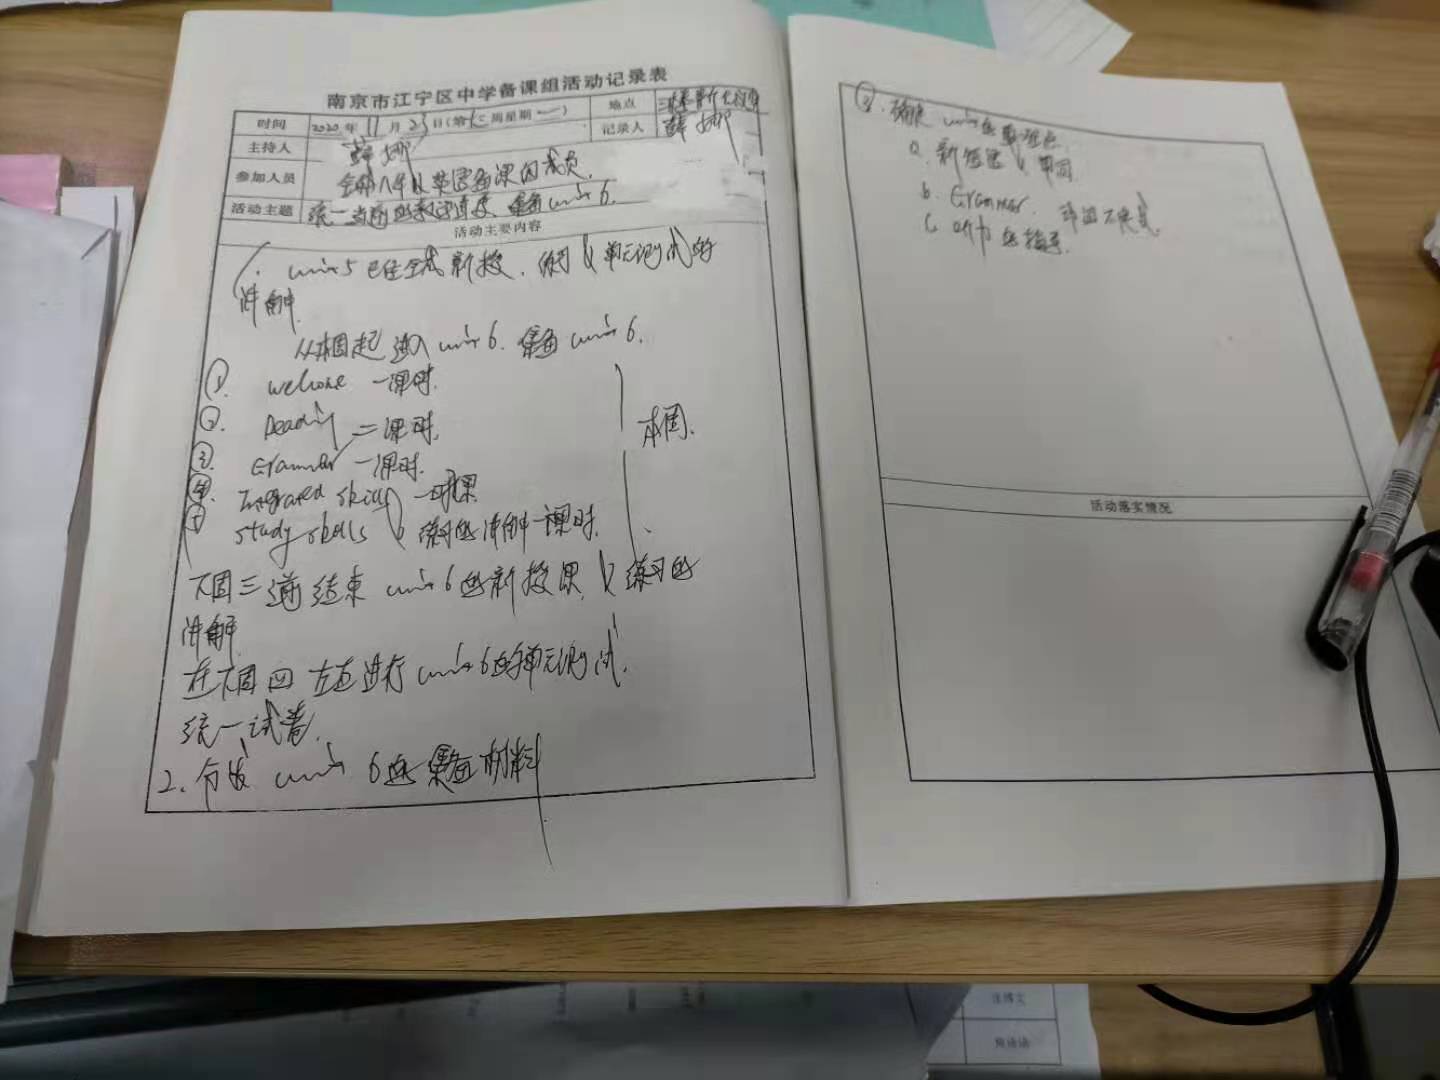 南京市江宁区中学备课组活动记录表
时间 2020年11月23日(第 周星期一) 地点
主持人 薛娜 记录人 薛娜
参加人员 全体八年级英语备课组成员.
活动主题 统一当前的教学进度、集备unit 6.
活动主要内容
1. unit 5 已经完成新授、练习及单元测试的
讲解.
从本周起进入unit 6. 集备unit 6.
①. Welcome 一课时.
②. Reading 二课时.
③. Grammar 一课时.
④. Integrated skills 一课时
⑤ study skills 练习的讲解一课时.
本周.
下周三前结束unit 6的新授课及练习的
讲解.
在下周四左右进行unit 6的单元测试.
统一试卷.
2. 分发unit 6的集备材料
③. 确定unit 6重难点.
a. 新短语及单词
b. Grammar. 动词不定式.
c. 听力的指导.
活动落实情况